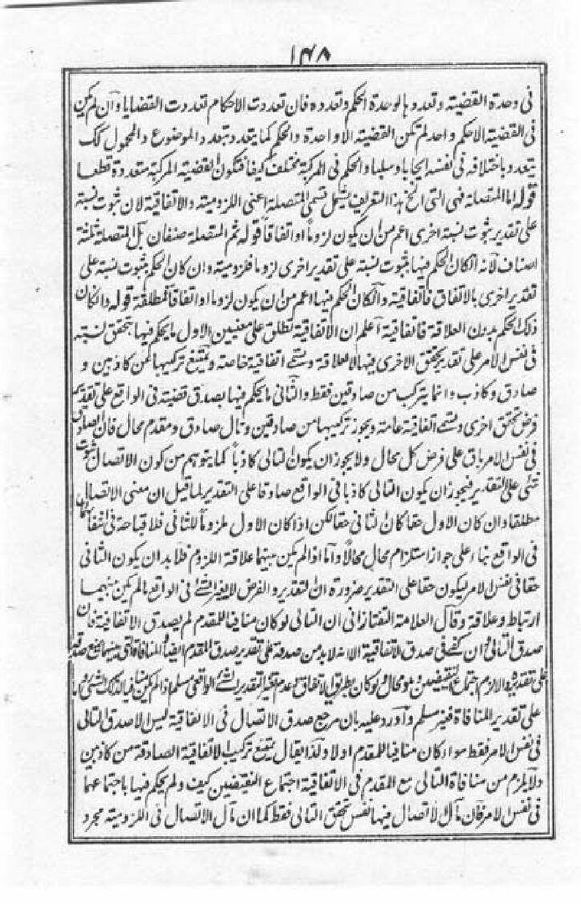 ١٤٨
فى وحدة القضية وتعددها لوحدة الحكم وتعدده فان تعددت الاحكام تعددت القضايا وان لم يكن
فى القضية الا حكم واحد لم تكن القضية الا واحدة والحكم كما يتعدد بتعدد الموضوع والمحمول كك
يتعدد باختلافه فى نفسه ايجابا وسلبا والحكم فى المركبة مختلف كيفا فتكون القضية المركبة متعددة قطعا
قوله اما المتصلة فهى التى الخ هذا التعريف يشمل قسمى المتصلة اعنى اللزومية والاتفاقية لان ثبوت نسبة
على تقدير ثبوت نسبة اخرى اعم من ان يكون لزوما او اتفاقا قوله ثم المتصلة صنفان بل المتصلة ثلثة
اصناف لانه ان كان الحكم فيها بثبوت نسبة على تقدير اخرى لزوما فلزومية وان كان الحكم بثبوت نسبة على
تقدير اخرى بالاتفاق فاتفاقية وان كان الحكم فيها اعم من ان يكون لزوما او اتفاقا فمطلقة قوله وان كان
ذلك الحكم بدون العلاقة فاتفاقية اعلم ان الاتفاقية تطلق على معنيين الاول ما يحكم فيها بتحقق نسبة
فى نفس الامر على تقدير تحقق الاخرى فيها لا لعلاقة وتسمى اتفاقية خاصة ويمتنع تركيبها من كاذبين و
صادق وكاذب وانما يتركب من صادقين فقط والثانى ما يحكم فيها بصدق قضية فى الواقع على تقدير
فرض تحقق اخرى وتسمى اتفاقية عامة ويجوز تركيبها من صادقين وتال صادق ومقدم محال فان الصادق
فى نفس الامر باق على فرض كل محال ولا يجوز ان يكون التالى كاذبا كما يتوهم من كون الاتصال ثبوت
شئ على التقدير فيجوز ان يكون التالى كاذبا فى الواقع صادقا على التقدير لما قيل ان معنى الاتصال
مطلقا ان كان الاول حقا كان الثانى حقا لكن اذا كان الاول ملزوما للثانى فلا قباحة فى انتفائهما
فى الواقع بناء على جواز استلزام محال محالا واما اذا لم يكن بينهما علاقة اللزوم فلا بد ان يكون الثانى
حقا فى نفس الامر ليكون حقا على التقدير ضرورة ان التقدير والفرض لا يغير الشئ فى الواقع ما لم يكن بينهما
ارتباط وعلاقة وقال العلامة التفتازانى ان التالى لو كان منافيا للمقدم لم يصدق الاتفاقية فان
صدق التالى وان كفى فى صدق الاتفاقية الا انه لا بد من صدقه على تقدير صدق المقدم ايضا والمنافاة التى بينهما يمنع صدقه
على تقديره والا لزم اجتماع النقيضين وهو محال
على تقدير المنافاة فغير مسلم واورد عليه بان مرجع صدق الاتصال فى الاتفاقية ليس الا صدق التالى
فى نفس الامر فقط سواء كان منافيا للمقدم او لا ولذا يقال يمتنع تركيب الاتفاقية الصادقة من كاذبين
ولا يلزم من منافاة التالى مع المقدم فى الاتفاقية اجتماع النقيضين كيف ولم يحكم فيها باجتماعهما
فى نفس الامر فان مآل الاتصال فيها نفس تحقق التالى فقط كما ان مآل الاتصال فى اللزومية مجرد